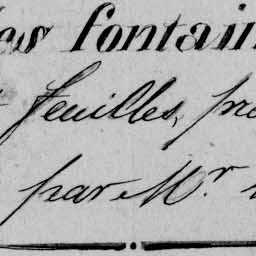 les fontain
feuilles, pr
par Mr